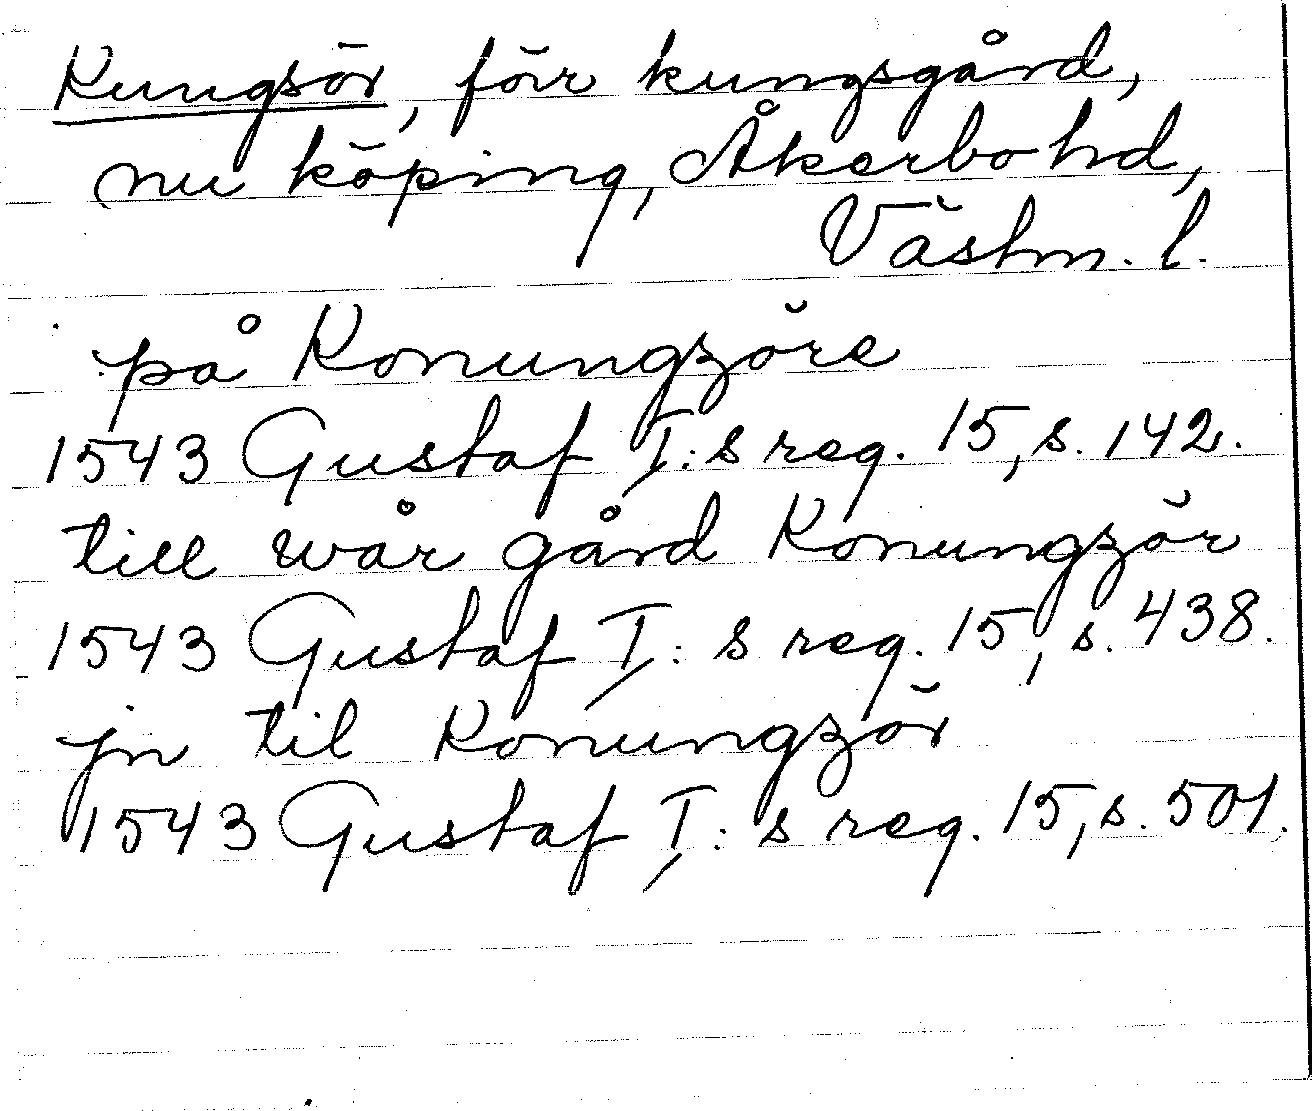 Kungsör, förr kungsgård,
nu köping, Åkerbo hd,
Västm. l.
på Konungzöre
1543 Gustaf I:s reg. 15, s. 142.
till wår gård Konungzör
1543 Gustaf I:s reg. 15, s. 438.
jn til Konungzör
1543 Gustaf I:s reg. 15, s. 501.